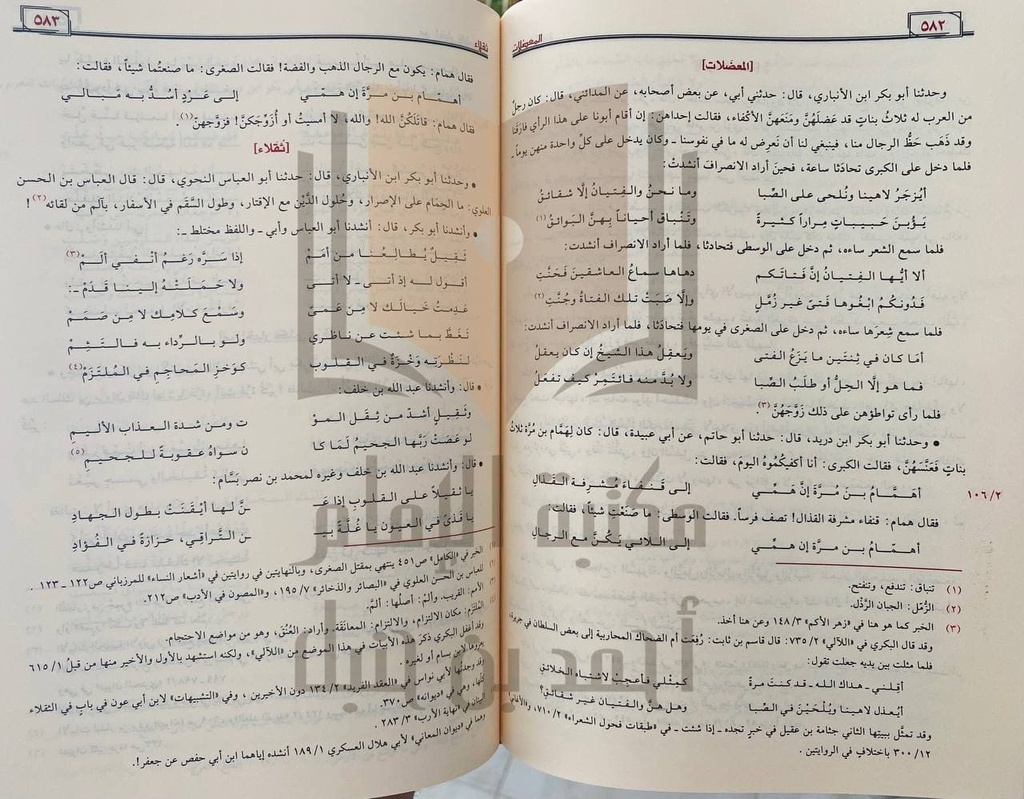 ٥٨٢
المعضلات
[المعضلات]
وحدثنا أبو بكر ابن الأنباري، قال: حدثني أبي، عن بعض أصحابه، عن المدائني، قال: كان رجلٌ
من العرب له ثلاثُ بناتٍ قد عَضَلَهُنَّ ومَنَعَهنَّ الأكفاء، فقالت إحداهن: إن أقام أبونا على هذا الرأي فارَقَنا
وقد ذَهَب حَظُّ الرجال منا، فينبغي لنا أن نَعرِض له ما في نفوسنا ـ وكان يدخل على كلِّ واحدة منهن يوماً ـ
فلما دخل على الكبرى تحادَثا ساعة، فحينَ أراد الانصرافَ أنشدتْ:
أيُزجَرُ لاهينا ونُلحى على الصِّبا وما نحنُ والفِتيانُ إلَّا شقائقُ
يَؤُبنَ حَبيباتٍ مِراراً كثيرةً وتَنْباقُ أحياناً بِهنَّ البَوائقُ (١)
فلما سمع الشعر ساءه، ثم دخل على الوسطى فتحادثا، فلما أراد الانصراف أنشدت:
ألا أيُّها الفِتيانُ إنَّ فَتاتَكم دهاها سماعُ العاشقينَ فَحَنَّتِ
فَدُونَكُمُ ابْغُوها فَتىً غير زُمَّلٍ وإلَّا صَبَتْ تلك الفتاةُ وجُنَّتِ (٢)
فلما سمع شِعرَها ساءه، ثم دخل على الصغرى في يومها فتحادَثا، فلما أراد الانصراف أنشدت:
أمَا كان في ثِنتَين ما يَزَعُ الفتى ويَعقِلُ هذا الشيخُ إن كان يعقلُ
فما هو إلَّا الحِلُّ أو طلَبُ الصِّبا ولا بُدَّ منه فائتَمِرْ كيف تفعلُ
فلما رأى تواطؤهن على ذلك زوَّجَهُنَّ (٣).
• وحدثنا أبو بكر ابن دريد، قال: حدثنا أبو حاتم، عن أبي عبيدة، قال: كان لِهَمَّام بن مُرَّة ثلاثُ
بناتٍ فَعَنَّسَهُنَّ، فقالت الكبرى: أنا أكفيكُمُوهُ اليومَ، فقالت:
١٠٦/٢
أهَمَّامُ بنَ مُرَّةَ إنَّ هَمِّي إلى قَنفاءَ مُشْرِفةِ القَذالِ
فقال همام: قنفاء مشرفة القذال! تصف فرساً. فقالت الوسطى: ما صَنَعْتِ شيئاً، فقالت:
أهمّامُ بن مرَّة إن همِّي إلى اللائي يَكُنَّ مع الرجالِ
(١) تنباق: تندفع، وتنفتح.
(٢) الزُّمَّل: الجبان الرَّذْل.
(٣) الخبر كما هو هنا في «زهر الأكم» ١٤٨/٣ وعن هنا أخذ.
وقد قال البكري في «اللآلي» ٧٣٥/٢: قال قاسم بن ثابت: رُفِعَت أم الضحاك المحاربية إلى بعض السلطان في جريرة،
فلما مثلت بين يديه جعلت تقول:
أقِلني ـ هداك الله ـ قد كنتَ مرةً كمثلي فأعجِبْ لاشتباه الخلائقِ
أيُعذل لاهينا ويُلحَيْنَ في الصِّبا وهل هنَّ والفتيان غير شقائق؟
وقد تمثَّل ببيتِها الثاني جثامة بن عقيل في خبرٍ تجده ـ إذا شئت ـ في «طبقات فحول الشعراء» ٧١٠/٢، و«الأغاني»
٣٠٠/١٢ باختلافٍ في الروايتين.
٥٨٣
ثقلاء
فقال همام: يكون مع الرجال الذهب والفضة! فقالت الصغرى: ما صنعتُما شيئاً، فقالت:
أهمَّامَ بن مرَّةَ إن همِّي إلى عَرْدٍ أسُدُّ به مَبالي
فقال همام: قاتَلَكُنَّ الله! والله، لا أمسيتُ أو أُزوِّجَكنَّ! فزوَّجهنَّ (١).
[ثقلاء]
• وحدثنا أبو بكر ابن الأنباري، قال: حدثنا أبو العباس النحوي، قال: قال العباس بن الحسن
العلوي: ما الحِمَام على الإصرار، وحُلول الدَّين مع الإقتار، وطول السَّقَم في الأسفار، بآلم من لقائه (٢)!
• وأنشدنا أبو بكر، قال: أنشدنا أبو العباس وأبي ـ واللفظ مختلط ـ:
ثقيلٌ يُطالِعُنا من أمَمْ إذا سَرَّه رَغمُ أنْفي ألَمّْ (٣)
أقول له إذ أتى ـ لا أتى ولا حَمَلَتْهُ إلينا قَدَمْ ـ:
عَدِمتُ خَيالَك لا مِن عَمىً وسَمْعَ كلامِك لا مِن صَمَمْ
تَغَطَّ بما شئت عن ناظري ولو بالرِّداء به فالتَثِمْ
لنَظْرَتِه وَخْزةٌ في القلوب كوَخزِ المَحاجِمِ في المُلتَزَمْ (٤)
• قال: وأنشدنا عبد الله بن خلف:
وثَقِيلٍ أشدَّ من ثِقَل الموْ تِ ومن شدة العذاب الأليمِ
لو عَصَتْ رَبَّها الجحيمُ لَمَا كا نَ سواهُ عقوبةً للجحيمِ (٥)
• قال: وأنشدنا عبد الله بن خلف وغيره لمحمد بن نصر بسَّام:
يا ثقيلاً على القلوب إذا عَـ ـنَّ لها أيْقَنَتْ بطول الجِهادِ
يا قَذىً في العيون يا غُلَّةً بيـ ـن التَّراقي، حَزازةً في الفُؤادِ
الخبر في «الكامل» ص٤٥١ ينتهي بمقتل الصغرى، وبالنهايتين في روايتين في «أشعار النساء» للمرزباني ص١٢٢ ـ ١٢٣.
للعباس بن الحسن العلوي في «البصائر والذخائر» ١٩٥/٧، و«المصون في الأدب» ص٢١٢.
الأمم: القريب. وألَمْ: أصلُها: ألَمَّ.
المُلتَزَم: مكان الالتزام، والالتزام: المعانَقة. وأراد: العُنُقَ، وهو من مواضع الاحتجام.
وقد أغفل البكري ذكرَ هذه الأبيات في هذا الموضع من «اللآلي»، ولكنه استشهد بالأول والأخير منها من قبلُ ٦١٥/١
لابن بسام أو لغيره.
وقد وجدتُها لأبي نواس في «العقد الفريد» ١٣٤/٢ دون الأخيرين، وفي «التشبيهات» لابن أبي عون في بابٍ في الثقلاء
وهي في «ديوانه» ص٣٧٠.
«نهاية الأرب» ٢٨٣/٣.
وهما في «ديوان المعاني» لأبي هلال العسكري ١٨٩/١ أنشده إياهما ابن أبي حفص عن جعفر!.
مكتبة الإمام